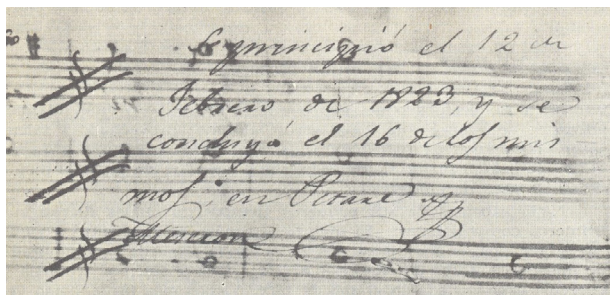 Se principió el 12 de
Febrero de 1823, y se
concluyó el 16 de los mis
mos, en Octane y